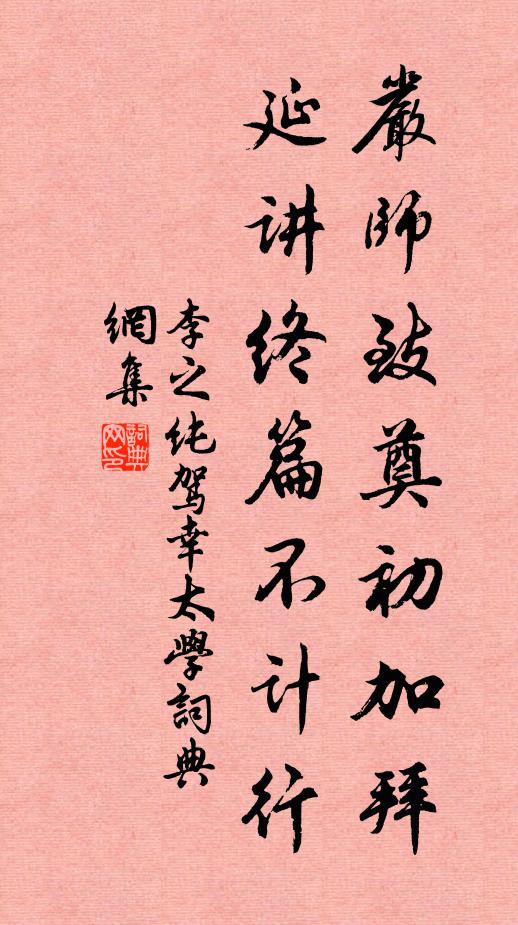 嚴師致奠初加拜
延讲终篇不计行
李之纯駕幸太學詞典
網集
詞典
网印